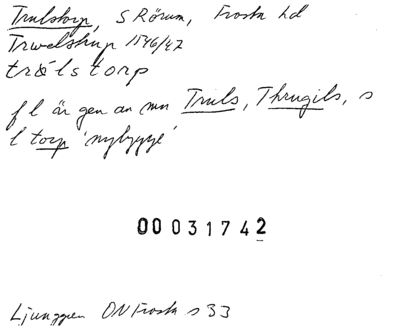 Trulstorp, S Rörum, Frosta hd
Trwelstrup 1546/47
trålstorp
f l är gen av mn Truls, Thrugils, s
l torp 'nybygge'
00031742
Ljunggren ON Frosta s 33